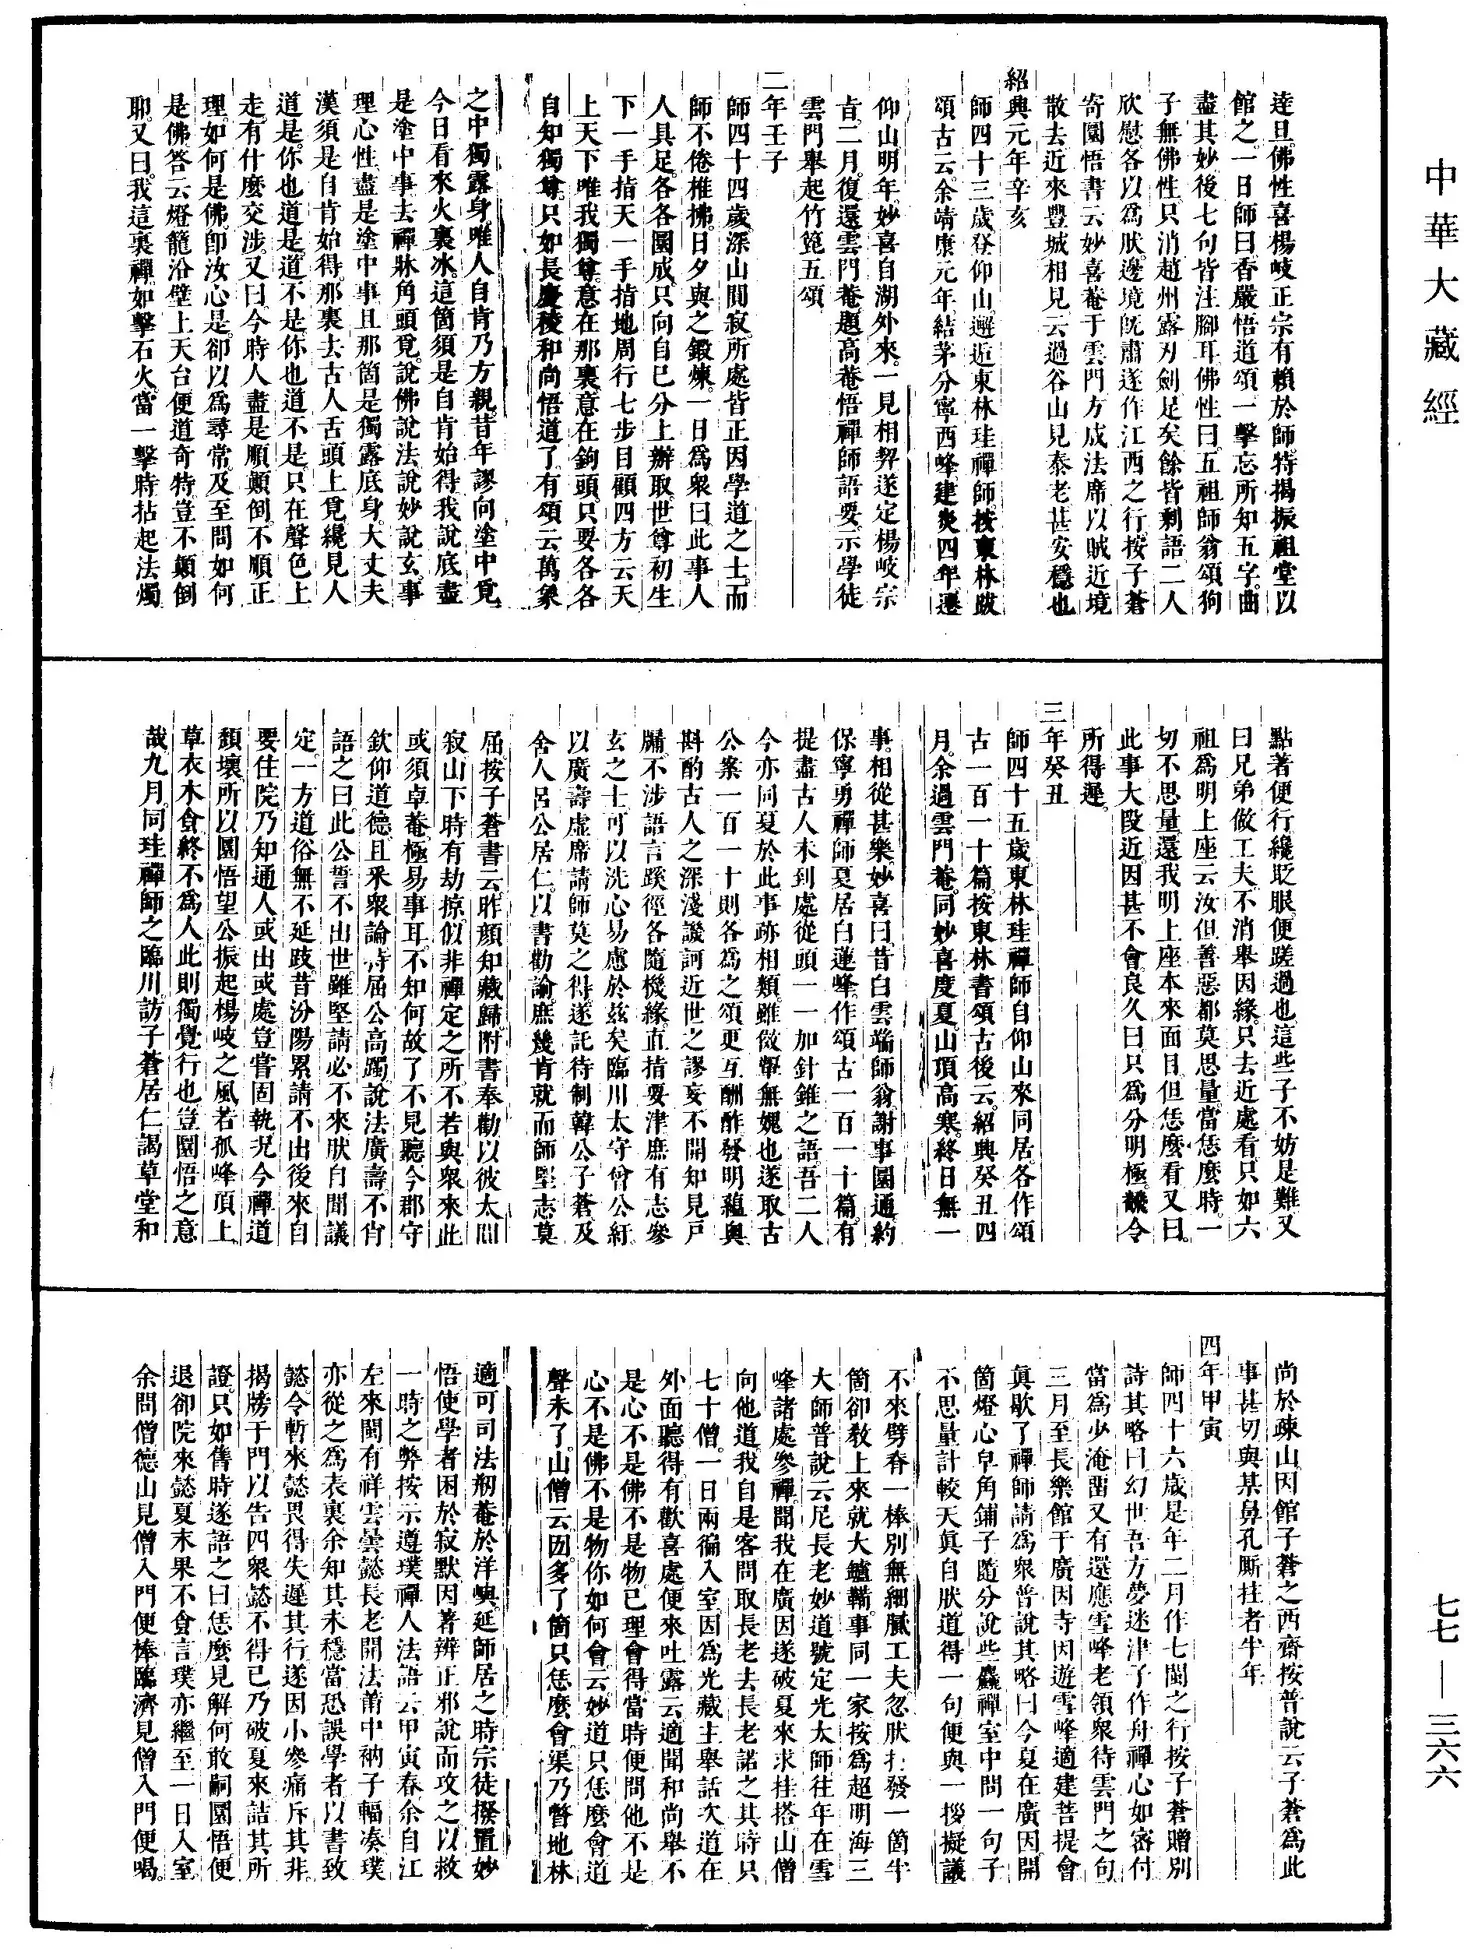 中華大藏經
逵旦佛性喜楊岐正宗有賴於師特揭振祖堂以
館之一日師曰香嚴悟道頌一擊忘所知五字曲
盡其妙後七句皆注腳耳佛性曰五祖師翁頌狗
子無佛性只消趙州露刃劍足矣餘皆剩語二人
欣慰各以為肰邊境旣肅遂作江西之行按子蒼
寄圜悟書云妙喜菴于雲門方成法席以賊近境
散去近來豐城相見云過谷山見泰老甚安穩也
紹興元年辛亥
師四十三歲登仰山邂逅東林珪禪師按東林跋
頌古云余靖康元年結茅分寧西峰建炎四年遷
仰山明年妙喜自湖外來一見相契遂定楊岐宗
旨二月復還雲門菴題高菴悟禪師語要示學徒
雲門舉起竹篦五頌
二年壬子
師四十四歲深山閴寂所處皆正因學道之士而
師不倦椎拂日夕與之鍛煉一日為衆曰此事人
人具足各各圓成只向自已分上辦取世尊初生
下一手指天一手指地周行七步目顧四方云天
上天下唯我獨尊意在那裏意在鉤頭只要各各
自知獨尊只如長慶稜和尚悟道了有頌云萬象
之中獨露身唯人自肯乃方親昔年謬向塗中覓
今日看來火裏冰這箇須是自肯始得我說底盡
是塗中事去禪牀角頭覓說佛說法說妙說玄事
理心性盡是塗中事且那箇是獨露底身大丈夫
漢須是自肯始得那裏去古人舌頭上覓纔見人
道是你也道是道不是你也道不是只在聲色上
走有什麼交涉又曰今時人盡是順顛倒不順正
理如何是佛卽汝心是卻以為尋常及至問如何
是佛答云燈籠沿壁上天台便道奇特豈不顛倒
耶又曰我這裏禪如擊石火當一擊時拈起法燭
點著便行纔眨眼便蹉過也這些子不妨是難又
曰兄弟做工夫不消舉因緣只去近處看只如六
祖為明上座云汝但善惡都莫思量當恁麼時一
切不思量還我明上座本來面目但恁麼看又曰
此事大段近因甚不會良久曰只為分明極飜令
所得遲
三年癸丑
師四十五歲東林珪禪師自仰山來同居各作頌
古一百一十篇按東林書頌古後云紹興癸丑四
月余過雲門菴同妙喜度夏山頂高寒終日無一
事相從甚樂妙喜曰昔白雲端師翁謝事圓通約
保寧勇禪師夏居白蓮峰作頌古一百一十篇有
提盡古人未到處從頭一一加針錐之語吾二人
今亦同夏於此事跡相類雖傚顰無媿也遂取古
公案一百一十則各為之頌更互酬酢發明蘊奧
斟酌古人之深淺譏訶近世之謬妄不開知見戶
牖不涉語言蹊徑各隨機緣直指要津庶有志參
玄之士可以洗心易慮於茲矣臨川太守曾公紆
以廣壽虛席請師莫之得遂託待制韓公子蒼及
舍人呂公居仁以書勸諭庶幾肯就而師堅志莫
屈按子蒼書云昨顏知藏歸附書奉勸以彼太閴
寂山下時有劫掠似非禪定之所不若與衆來此
或須卓菴極易事耳不知何故了不見聽今郡守
欽仰道德且釆衆論時屈公高躅說法廣壽不肯
語之曰此公誓不出世雖堅請必不來肰自聞議
定一方道俗無不延跂昔汾陽累請不出後來自
要住院乃知通人或出或處豈嘗固執況今禪道
頹壞所以圜悟望公振起楊岐之風若孤峰頂上
草衣木食終不為人此則獨覺行也豈圜悟之意
哉九月同珪禪師之臨川訪子蒼居仁謁草堂和
尚於疎山因館子蒼之西齋按普說云子蒼為此
事甚切與某鼻孔廝拄者半年
四年甲寅
師四十六歲是年二月作七閩之行按子蒼贈別
詩其略曰幻世吾方夢迷津子作舟禪心如密付
當為少淹畱又有還應雪峰老領衆待雲門之句
三月至長樂館干廣因寺因遊雪峰適建菩提會
眞歇了禪師請為衆普說其略曰今夏在廣因開
箇燈心皁角鋪子隨分說些麤禪室中問一句子
不思量計較天眞自肰道得一句便與一拶擬議
不來劈脊一棒別無細膩工夫忽肰打發一箇半
箇卻敎上來就大鑪鞴事同一家按為超明海三
大師普說云尼長老妙道號定光太師往年在雪
峰諸處參禪聞我在廣因遂破夏來求挂搭山僧
向他道我自是客問取長老去長老諾之其時只
七十僧一日兩徧入室因為光藏主舉話次道在
外面聽得有歡喜處便來吐露云適聞和尚舉不
是心不是佛不是物已理會得當時便問他不是
心不是佛不是物你如何會云妙道只恁麼會道
聲未了山僧云囦多了箇只恁麼會渠乃瞥地林
適可司法剏菴於洋嶼延師居之時宗徒撥置妙
悟使學者困於寂默因著辨正邪說而攻之以救
一時之弊按示遵璞禪人法語云甲寅春余自江
左來閩有祥雲曇懿長老開法莆中衲子輻凑璞
亦從之為表裏余知其未穩當恐誤學者以書致
懿令暫來懿畏得失遲其行遂因小參痛斥其非
揭牓于門以告四衆懿不得已乃破夏來詰其所
證只如舊時遂語之曰恁麼見解何敢嗣圜悟便
退卻院來懿夏末果不食言璞亦繼至一日入室
余問僧德山見僧入門便棒臨濟見僧入門便喝
七七—三六六